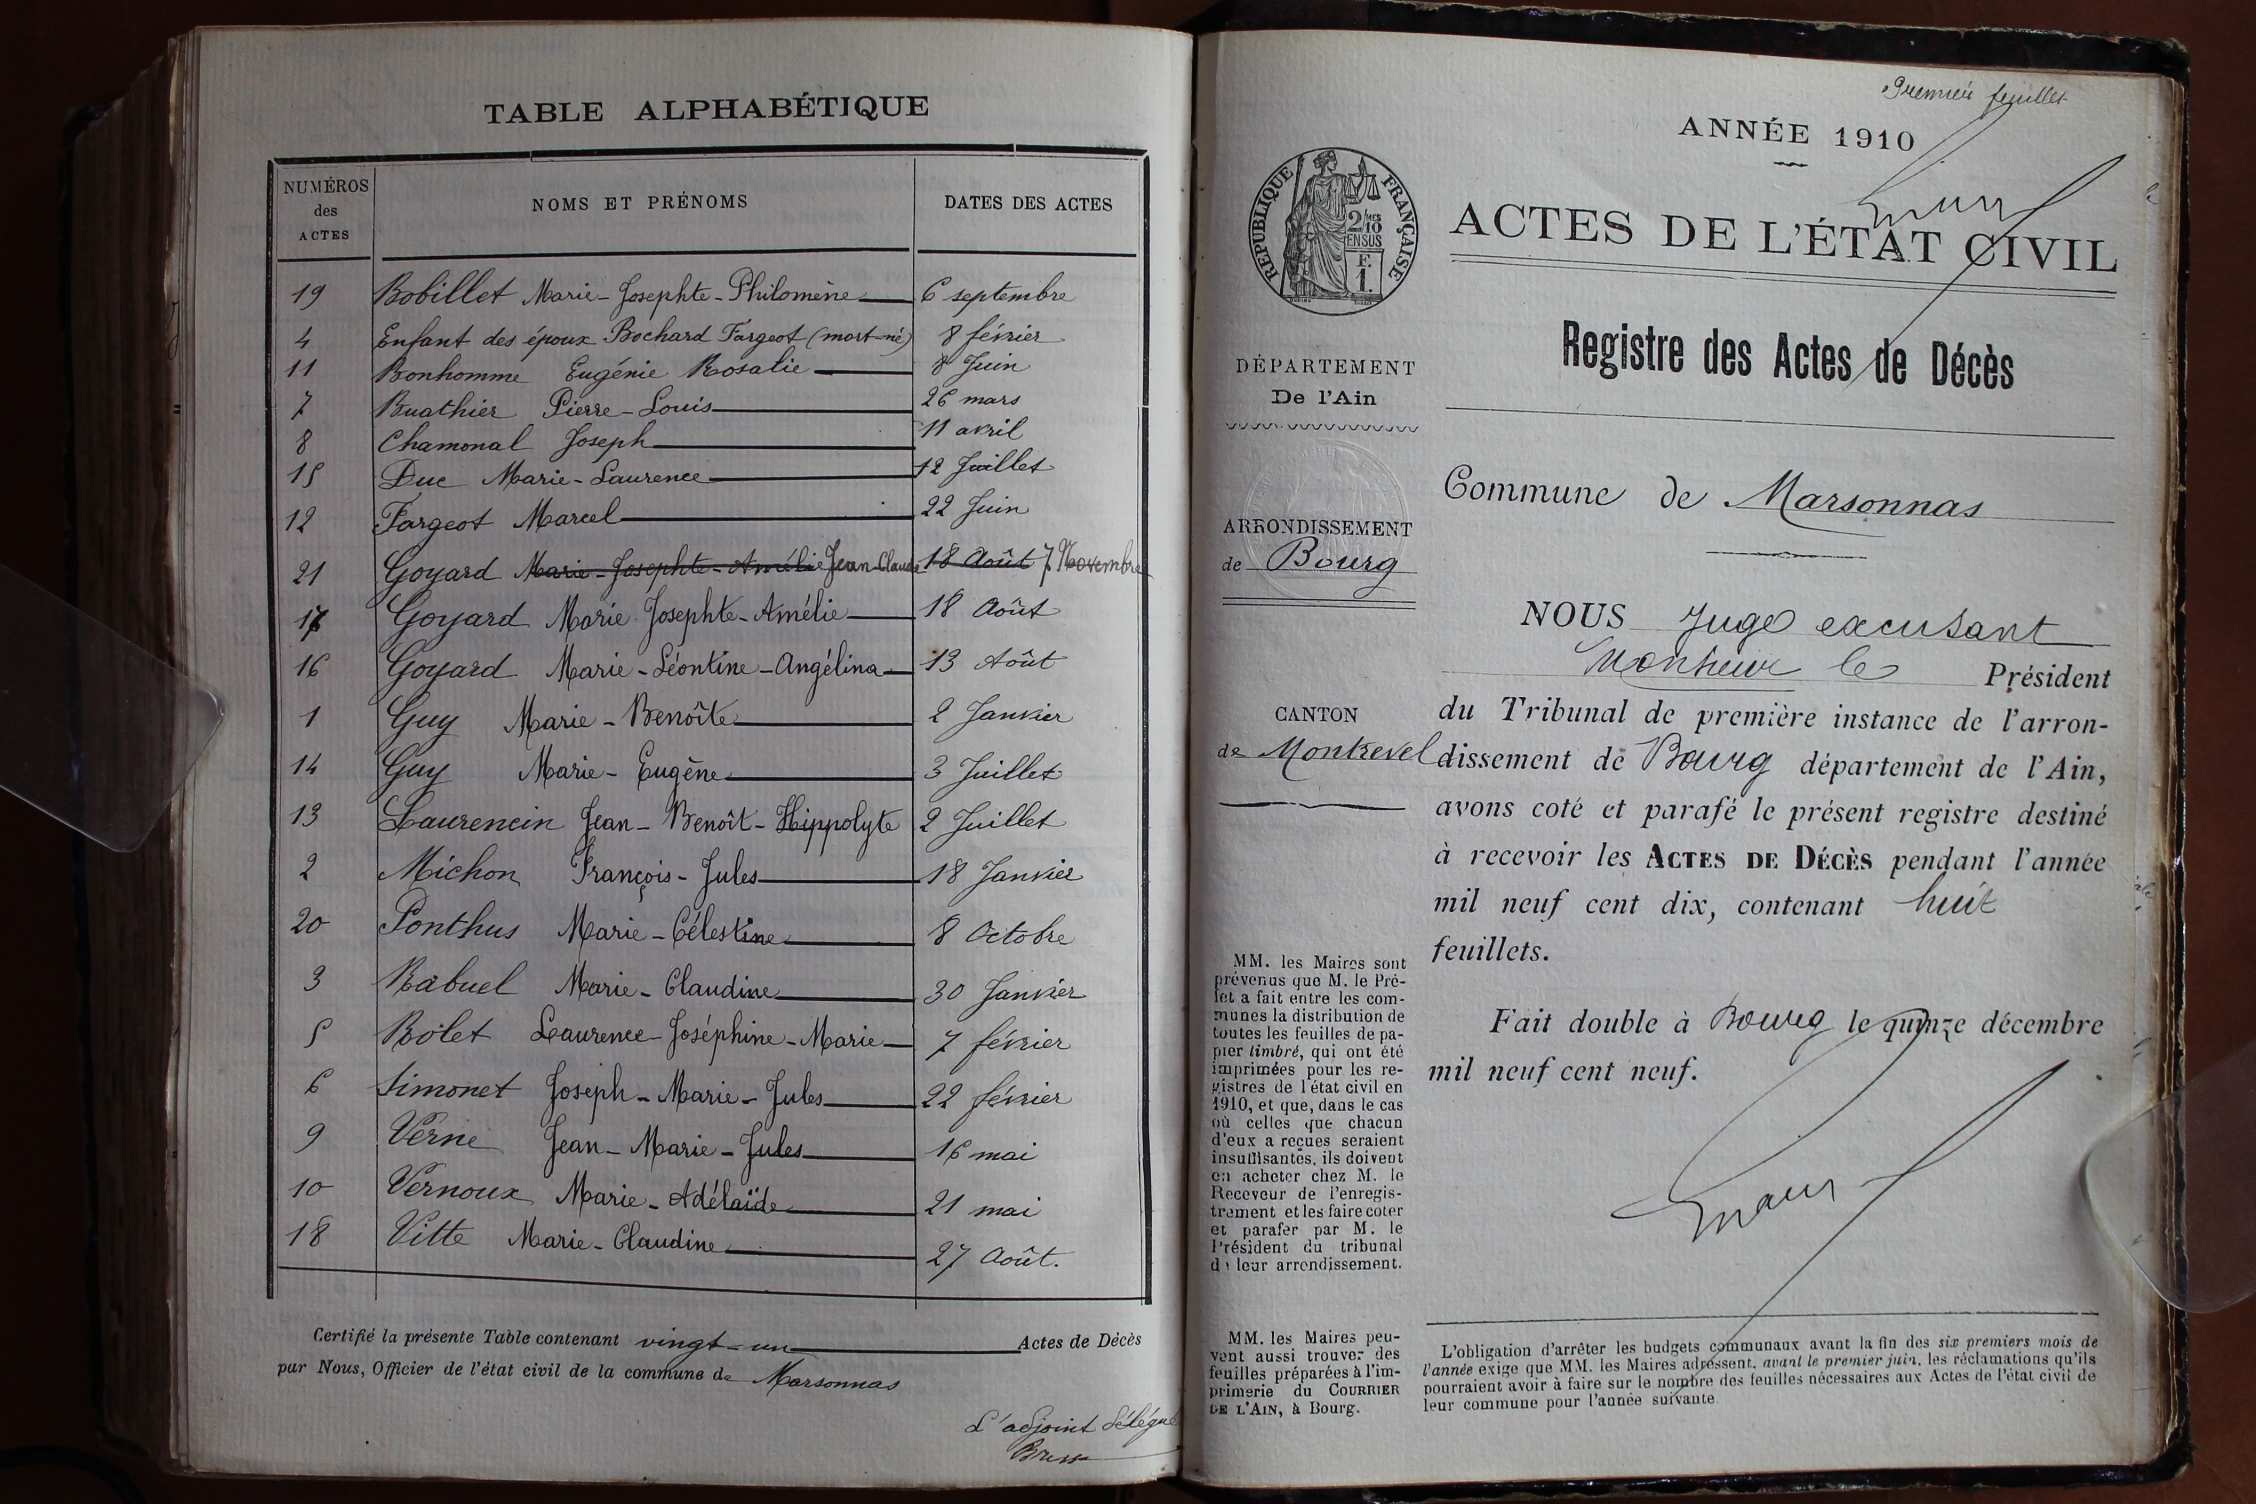 TABLE ALPHABÉTIQUE
NUMÉROS des ACTES NOMS ET PRÉNOMS DATES DES ACTES
19 Bobillet Marie-Josephte-Philomène 6 septembre
4 Enfant des époux Bochard Fargeot (mort-né) 8 février
11 Bonhomme Eugénie Rosalie 8 Juin
7 Buathier Pierre-Louis 26 mars
8 Chamonal Joseph 11 avril
15 Duc Marie-Laurence 12 Juillet
12 Fargeot Marcel 22 Juin
21 Goyard Marie-Josephte-Amélie Jean-Claude 18 Août 7 Novembre
17 Goyard Marie Josephte-Amélie 18 Août
16 Goyard Marie-Léontine-Angélina 13 Août
1 Guy Marie-Benoîte 2 Janvier
14 Guy Marie-Eugène 3 Juillet
13 Laurencin Jean-Benoît-Hippolyte 2 Juillet
2 Michon François-Jules 18 Janvier
20 Ponthus Marie-Célestine 8 Octobre
3 Rabuel Marie-Claudine 30 Janvier
5 Rolet Laurence-Joséphine-Marie 7 février
6 Simonet Joseph-Marie-Jules 22 février
9 Verne Jean-Marie-Jules 16 mai
10 Vernoux Marie-Adélaïde 21 mai
18 Vitte Marie-Claudine 27 Août.
Certifié la présente Table contenant vingt-un Actes de Décès
par Nous, Officier de l'état civil de la commune de Marsonnas
L'adjoint délégué
Premier feuillet
ANNÉE 1910
RÉPUBLIQUE FRANÇAISE
2/10
EN SUS
F.
1.
ACTES DE L'ÉTAT CIVIL
Registre des Actes de Décès
DÉPARTEMENT
De l'Ain
ARRONDISSEMENT
de Bourg
CANTON
de Montrevel
MM. les Maires sont
prévenus que M. le Pré-
fet a fait entre les com-
munes la distribution de
toutes les feuilles de pa-
pier timbré, qui ont été
imprimées pour les re-
gistres de l'état civil en
1910, et que, dans le cas
où celles que chacun
d'eux a reçues seraient
insuffisantes, ils doivent
en acheter chez M. le
Receveur de l'enregis-
trement et les faire coter
et parafer par M. le
Président du tribunal
de leur arrondissement.
MM. les Maires peu-
vent aussi trouver des
feuilles préparées à l'im-
primerie du COURRIER
DE L'AIN, à Bourg.
Commune de Marsonnas
NOUS Juge excusant
Monsieur le Président
du Tribunal de première instance de l'arron-
dissement de Bourg département de l'Ain,
avons coté et parafé le présent registre destiné
à recevoir les ACTES DE DÉCÈS pendant l'année
mil neuf cent dix, contenant huit
feuillets.
Fait double à Bourg le quinze décembre
mil neuf cent neuf.
L'obligation d'arrêter les budgets communaux avant la fin des six premiers mois de
l'année exige que MM. les Maires adressent, avant le premier juin, les réclamations qu'ils
pourraient avoir à faire sur le nombre des feuilles nécessaires aux Actes de l'état civil de
leur commune pour l'année suivante.